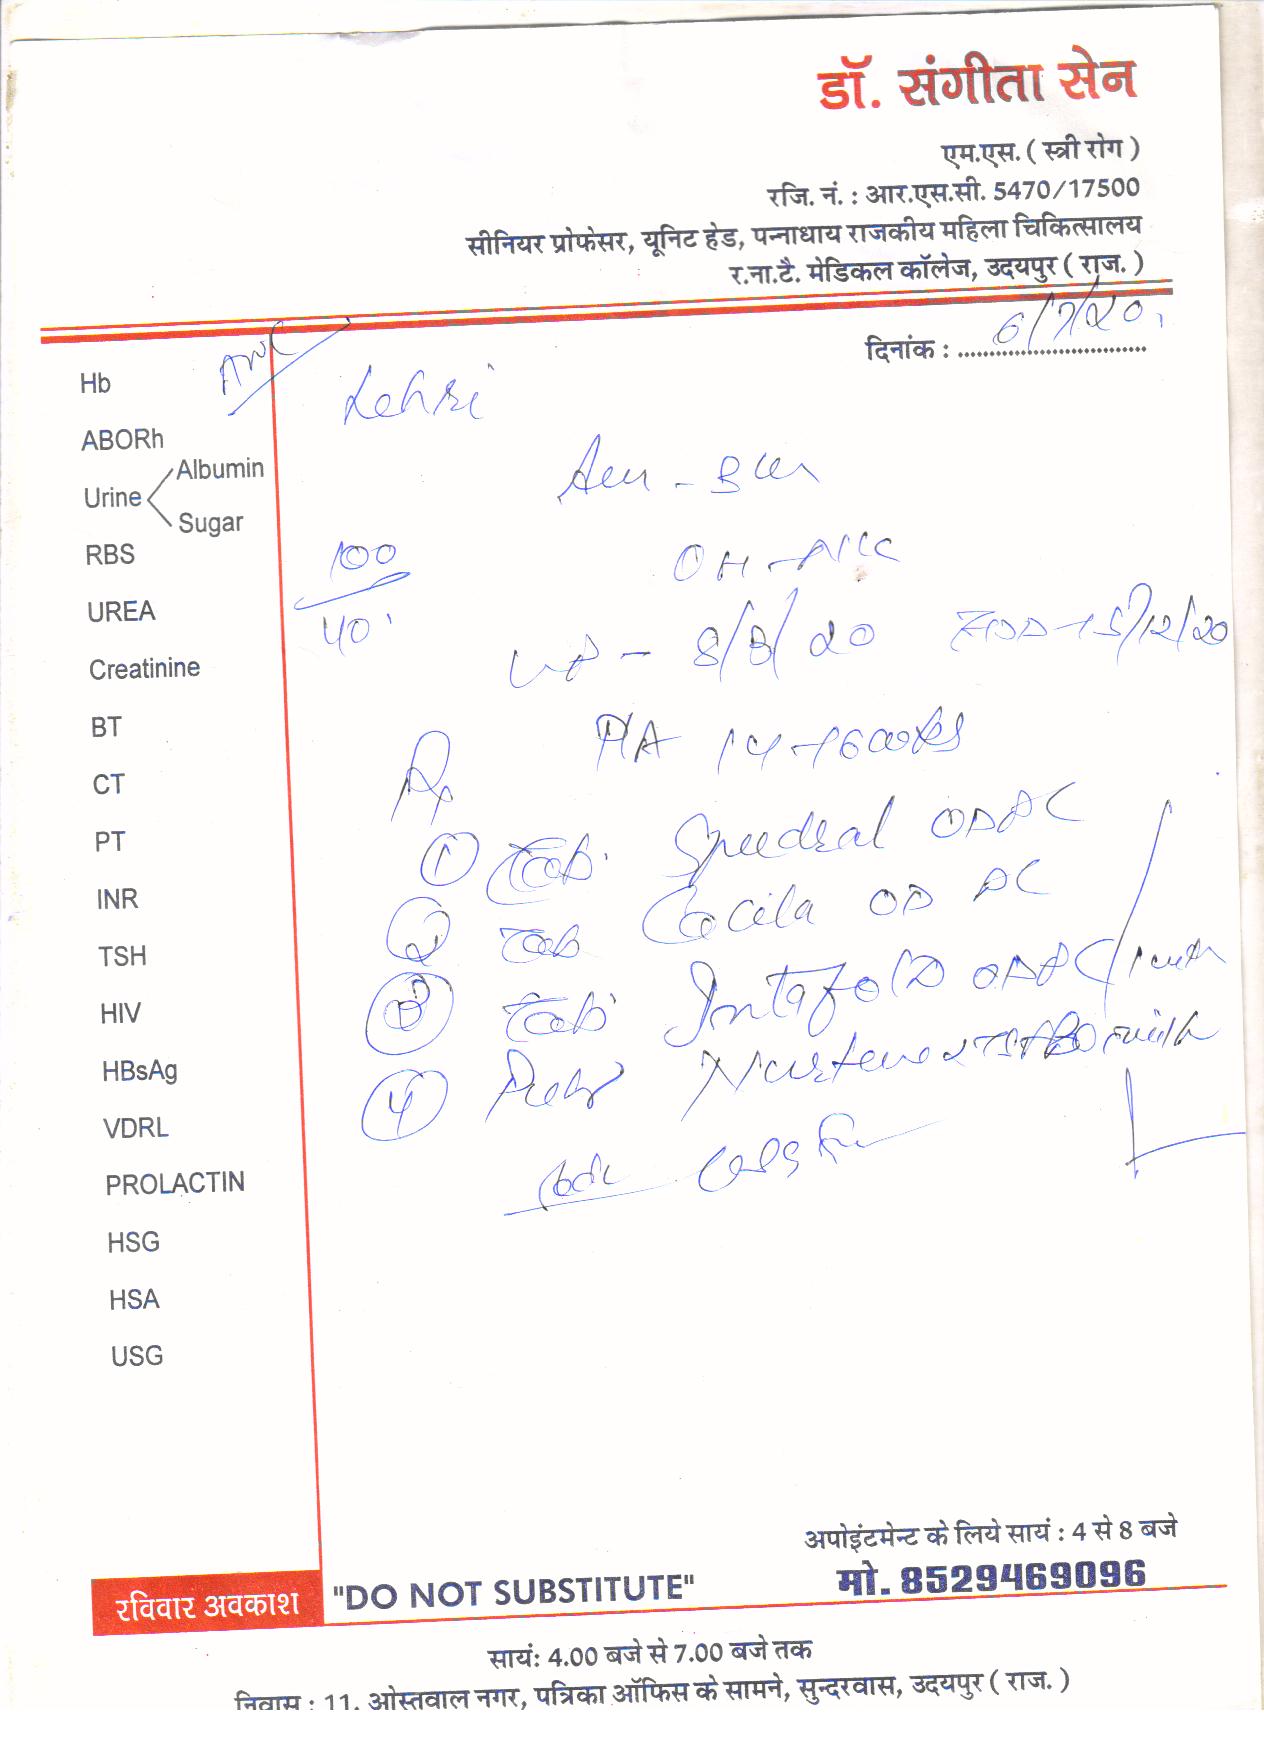 डॉ. संगीता सेन
एम.एस. ( स्त्री रोग )
रजि. नं. : आर.एस.सी. 5470/17500
सीनियर प्रोफेसर, यूनिट हेड, पन्नाधाय राजकीय महिला चिकित्सालय
र.ना.टै. मेडिकल कॉलेज, उदयपुर ( राज. )
दिनांक : 6/7/20
ANC
Lehri
Hb
ABORh
Urine Albumin
Sugar
RBS
UREA
Creatinine
BT
CT
PT
INR
TSH
HIV
HBsAg
VDRL
PROLACTIN
HSG
HSA
USG
100
40
OH -
8/3/20 EDD - 15/12/20
PA 14-16 wks
Rx
1 Tab. OD PC
2 Tab Cocila OD PC
3 Tab. Intafold OD PC
4 milk
अपोइंटमेन्ट के लिये सायं : 4 से 8 बजे
मो. 8529469096
रविवार अवकाश "DO NOT SUBSTITUTE"
सायं: 4.00 बजे से 7.00 बजे तक
निवास : 11. ओस्तवाल नगर, पत्रिका ऑफिस के सामने, सुन्दरवास, उदयपुर ( राज. )